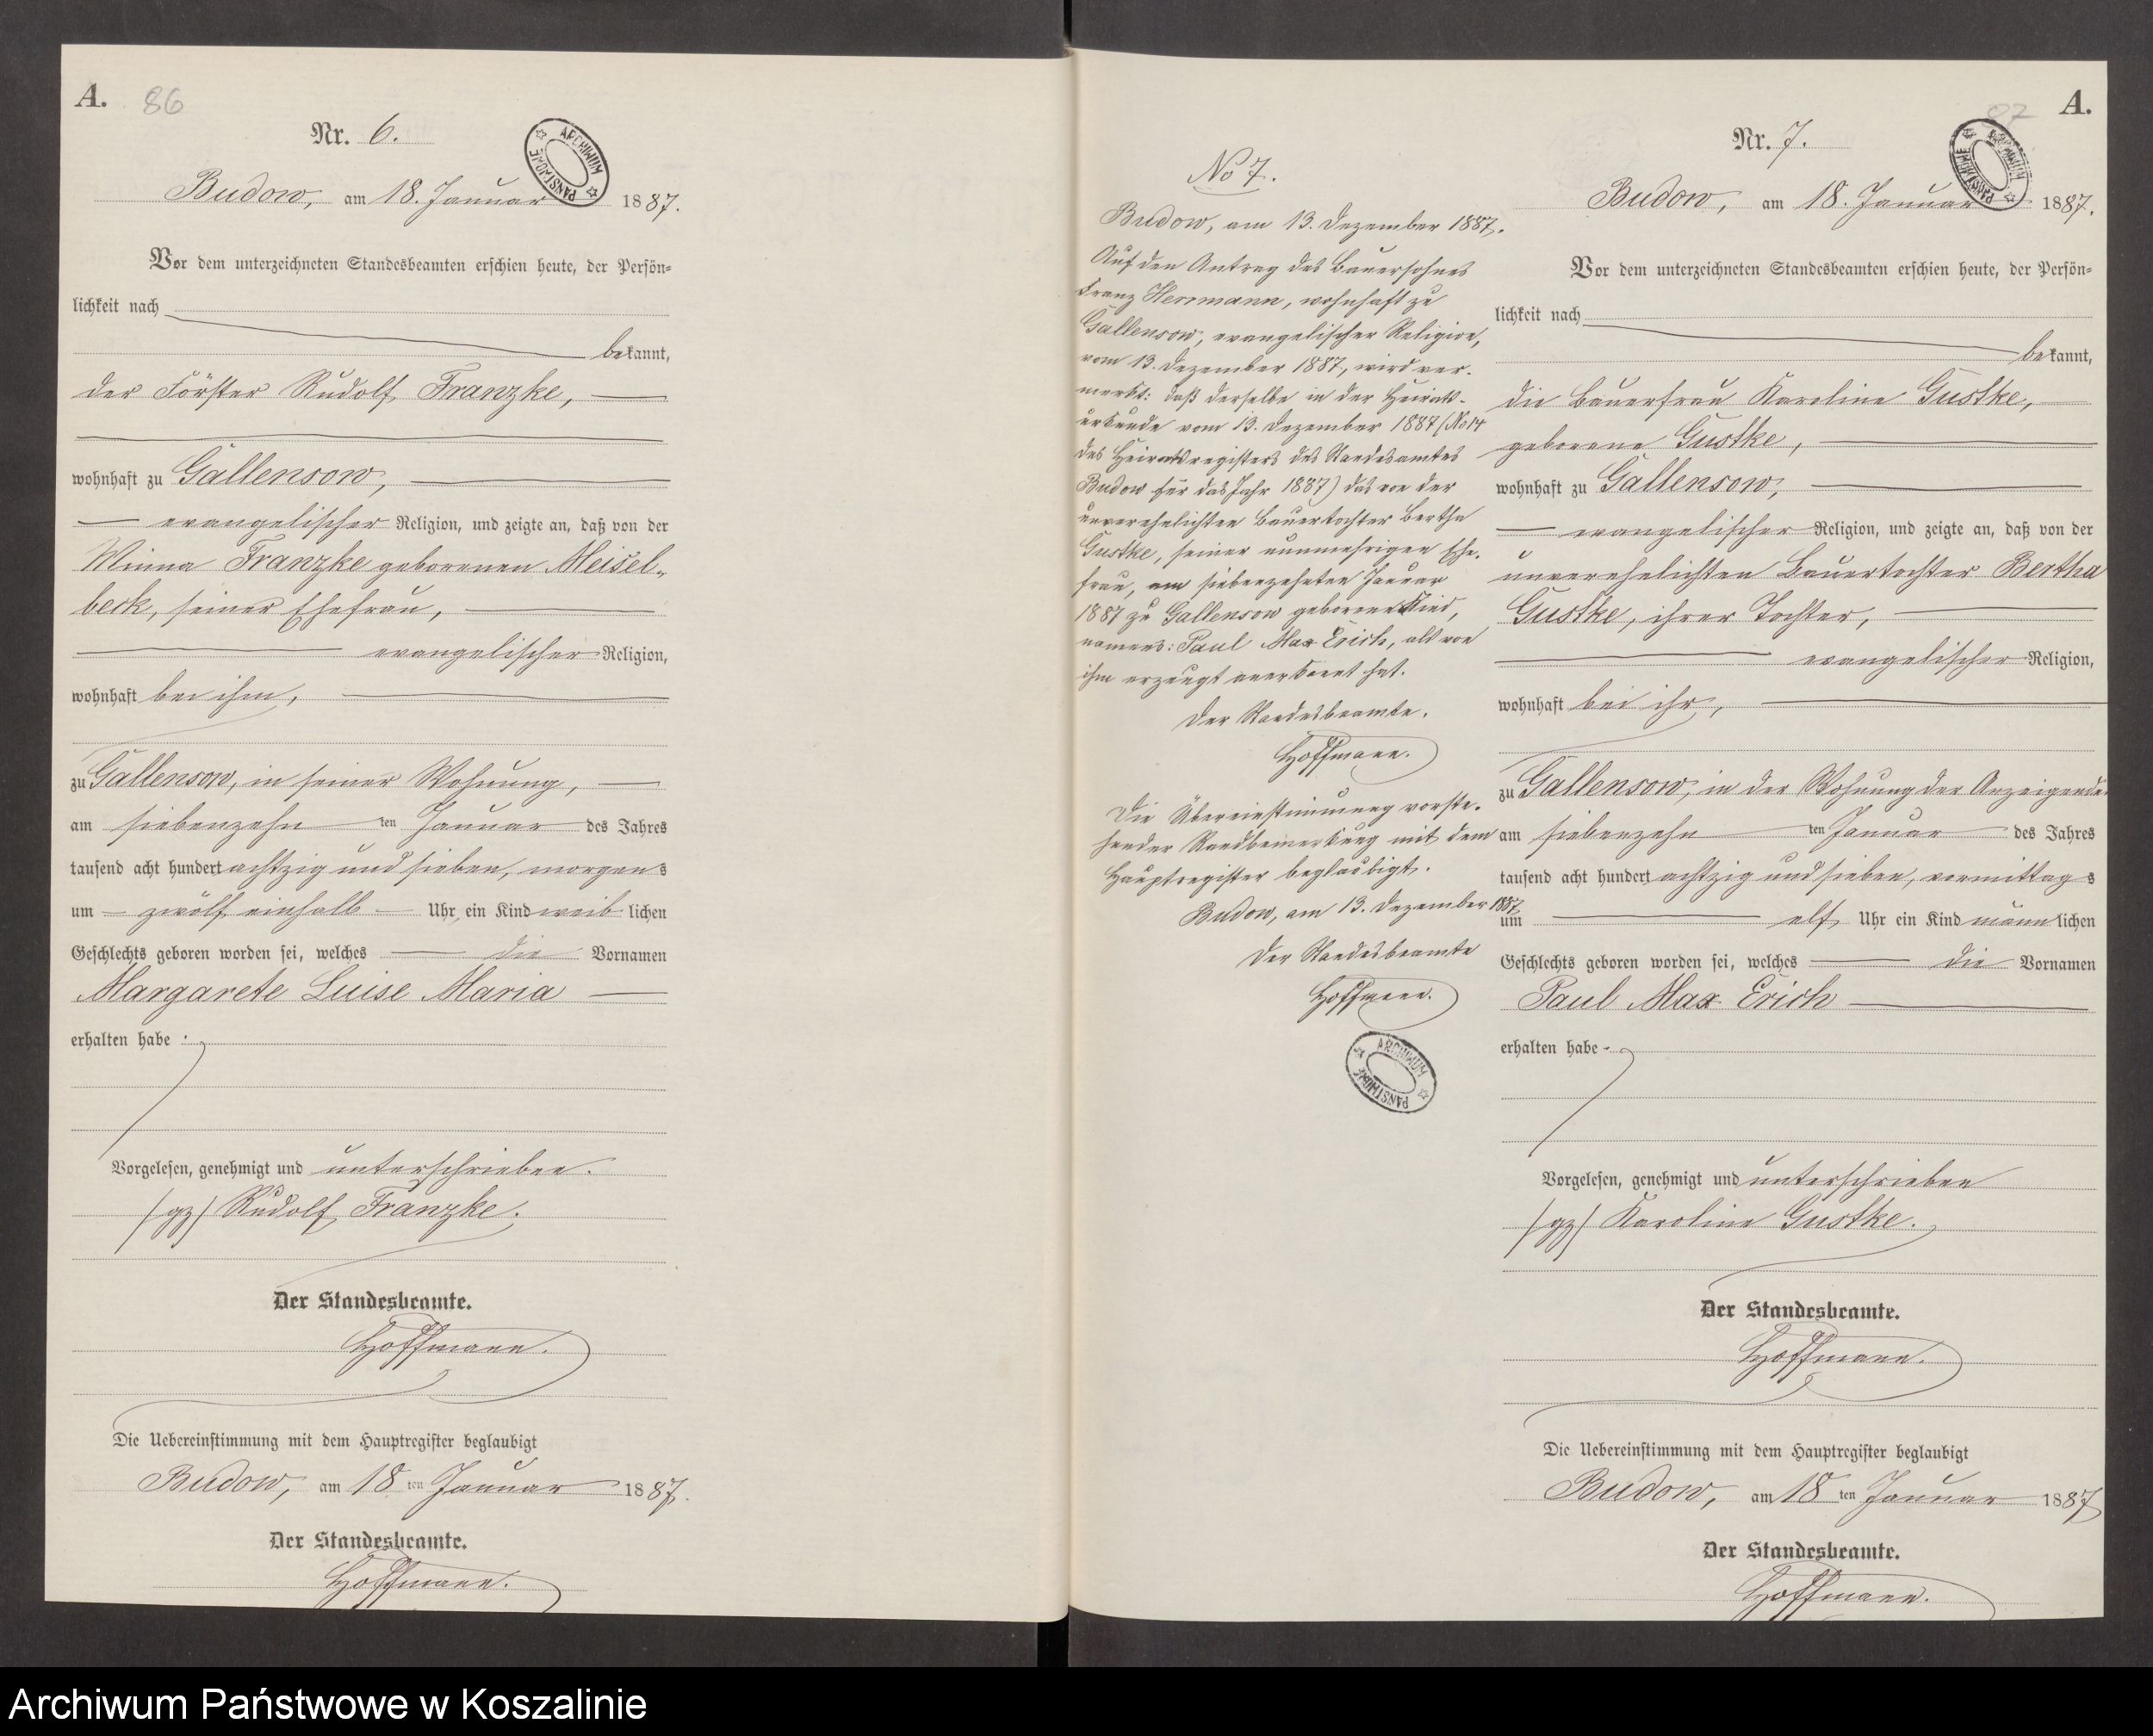 A. 86
Nr. 6.
ARCHIWUM PAŃSTWOWE
Budow, am 18. Januar 1887.
Vor dem unterzeichneten Standesbeamten erschien heute, der Persön-
lichkeit nach
bekannt,
der Förster Rudolf Franzke,
wohnhaft zu Gallensow,
evangelischer Religion, und zeigte an, daß von der
Minna Franzke geborenen Meisel-
beck, seiner Ehefrau,
evangelischer Religion,
wohnhaft bei ihm,
zu Gallensow, in seiner Wohnung,
am siebenzehn ten Januar des Jahres
tausend acht hundert achtzig und sieben, morgens
um zwölf einhalb Uhr, ein Kind weiblichen
Geschlechts geboren worden sei, welches die Vornamen
Margarete Luise Maria
erhalten habe.
Vorgelesen, genehmigt und unterschrieben.
/gz/ Rudolf Franzke.
Der Standesbeamte.
Hoffmann.
Die Uebereinstimmung mit dem Hauptregister beglaubigt
Budow, am 18 ten Januar 1887.
Der Standesbeamte.
Hoffmann.
No 7.
Budow, am 13. Dezember 1887.
Auf den Antrag des Bauersohnes
Franz Herrmann, wohnhaft zu
Gallensow, evangelischer Religion,
vom 13. Dezember 1887, wird ver-
merkt: daß derselbe in der Heirats-
urkunde vom 13. Dezember 1887 (No 14
des Heiratsregisters des Standesamtes
Budow für das Jahr 1887) das von der
unverehelichten Bauertochter Bertha
Gustke, seiner nunmehrigen Ehe-
frau, am siebenzehnten Januar
1887 zu Gallensow geborene Kind,
namens: Paul Max Erich, als von
ihm erzeugt anerkannt hat.
Der Standesbeamte.
Hoffmann.
Die Übereinstimmung vorste-
hender Randbemerkung mit dem
Hauptregister beglaubigt.
Budow, am 13. Dezember 1887
Der Standesbeamte
Hoffmann.
ARCHIWUM PAŃSTWOWE
87 A.
Nr. 7.
ARCHIWUM PAŃSTWOWE
Budow, am 18. Januar 1887.
Vor dem unterzeichneten Standesbeamten erschien heute, der Persön-
lichkeit nach
bekannt,
die Bauerfrau Karoline Gustke,
geborene Gustke,
wohnhaft zu Gallensow,
evangelischer Religion, und zeigte an, daß von der
unverehelichten Bauertochter Bertha
Gustke, ihrer Tochter,
evangelischer Religion,
wohnhaft bei ihr,
zu Gallensow, in der Wohnung der Anzeigende
am siebenzehn ten Januar des Jahres
tausend acht hundert achtzig und sieben, vormittags
um elf Uhr ein Kind männlichen
Geschlechts geboren worden sei, welches die Vornamen
Paul Max Erich
erhalten habe.
Vorgelesen, genehmigt und unterschrieben
/gz/ Karoline Gustke.
Der Standesbeamte.
Hoffmann.
Die Uebereinstimmung mit dem Hauptregister beglaubigt
Budow, am 18 ten Januar 1887
Der Standesbeamte.
Hoffmann.
Archiwum Państwowe w Koszalinie